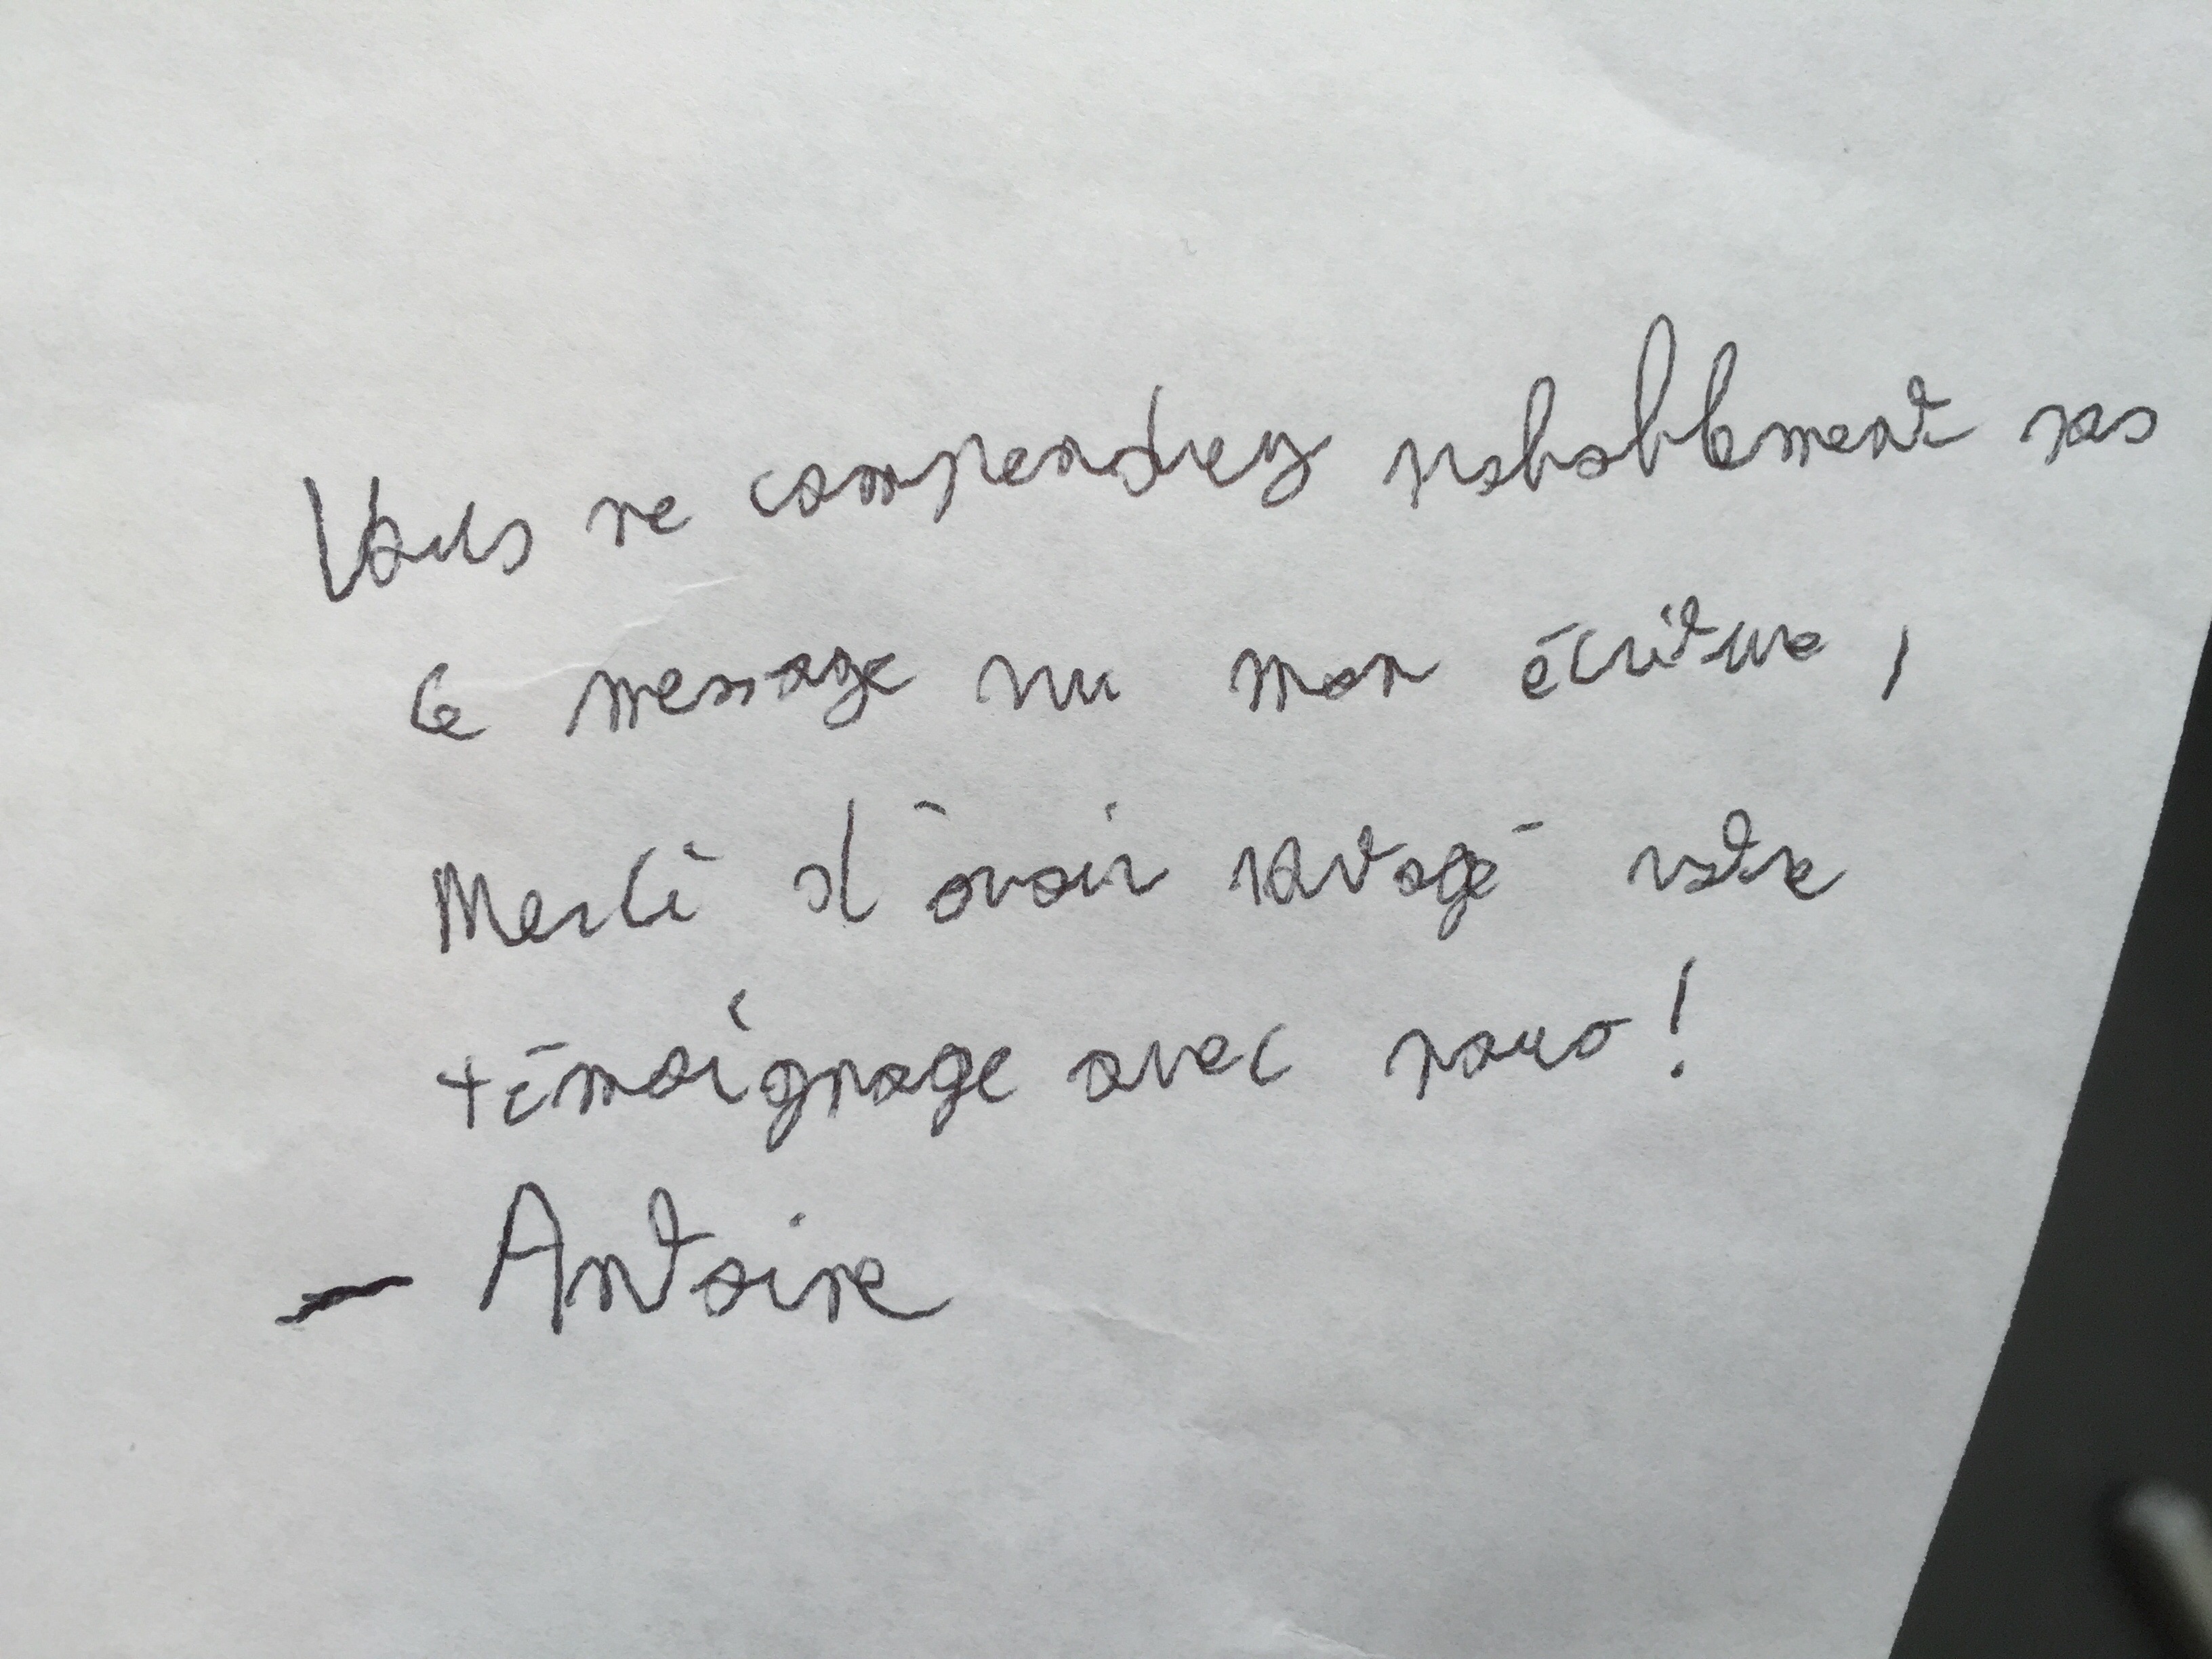 Vous ne comprendrez probablement pas
ce message vu mon écriture,
Merci d'avoir partagé votre
témoignage avec nous !
- Antoine